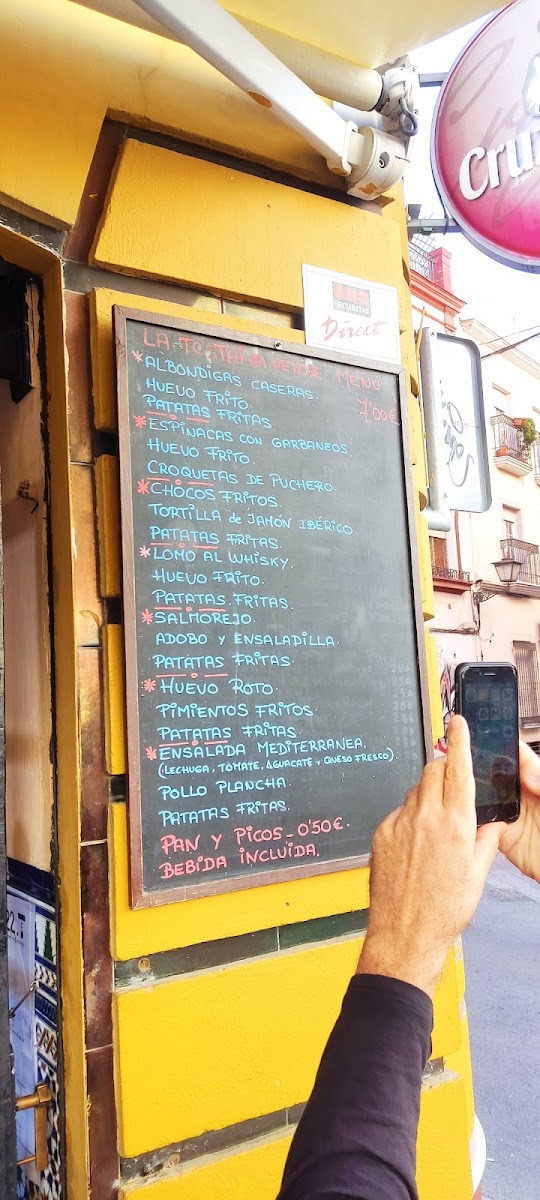 Cruz
SECURITAS
Direct
MENU
7'00€
*ALBONDIGAS CASERAS.
HUEVO FRITO.
PATATAS FRITAS
*ESPINACAS CON GARBANZOS
HUEVO FRITO.
CROQUETAS DE PUCHERO.
*CHOCOS FRITOS.
TORTILLA de JAMÓN IBÉRICO.
PATATAS FRITAS.
*LOMO AL WHISKY.
HUEVO FRITO.
PATATAS FRITAS.
*SALMOREJO.
ADOBO Y ENSALADILLA.
PATATAS FRITAS.
*HUEVO ROTO.
PIMIENTOS FRITOS.
PATATAS FRITAS.
*ENSALADA MEDITERRANEA.
(LECHUGA, TOMATE, AGUACATE Y QUESO FRESCO).
POLLO PLANCHA.
PATATAS FRITAS.
PAN Y PICOS - 0'50€.
BEBIDA INCLUIDA.